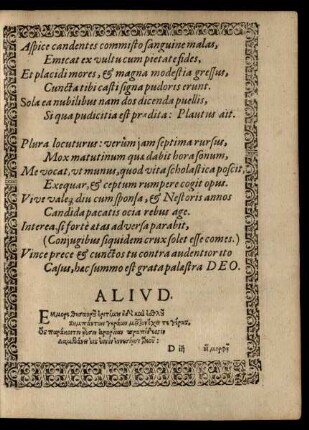 Aspice candentes commisto sanguine malas,
Emicat ex vultu cum pietate fides,
Et placidi mores, & magna modestia gressus,
Cuncta tibi casti signa pudoris erunt.
Sola ea nubilibus nam dos dicenda puellis,
Si qua pudicitia est prædita: Plautus ait.
Plura locuturus: verùm jam septima rursus,
Mox matutinum qua dabit hora sonum,
Me vocat, ut munus, quod vita scholastica poscit,
Exequar, & ceptum rumpere cogit opus.
Vive valeq; diu cum sponsa, & Nestoris annos
Candida pacatis ocia rebus age.
Interea, si fortè ætas adversa parabit,
(Conjugibus siquidem crux solet esse comes.)
Vince prece & cunctos tu contra audentior ito
Casus, hac summo est grata palæstra DEO.
ALIVD.
D iij